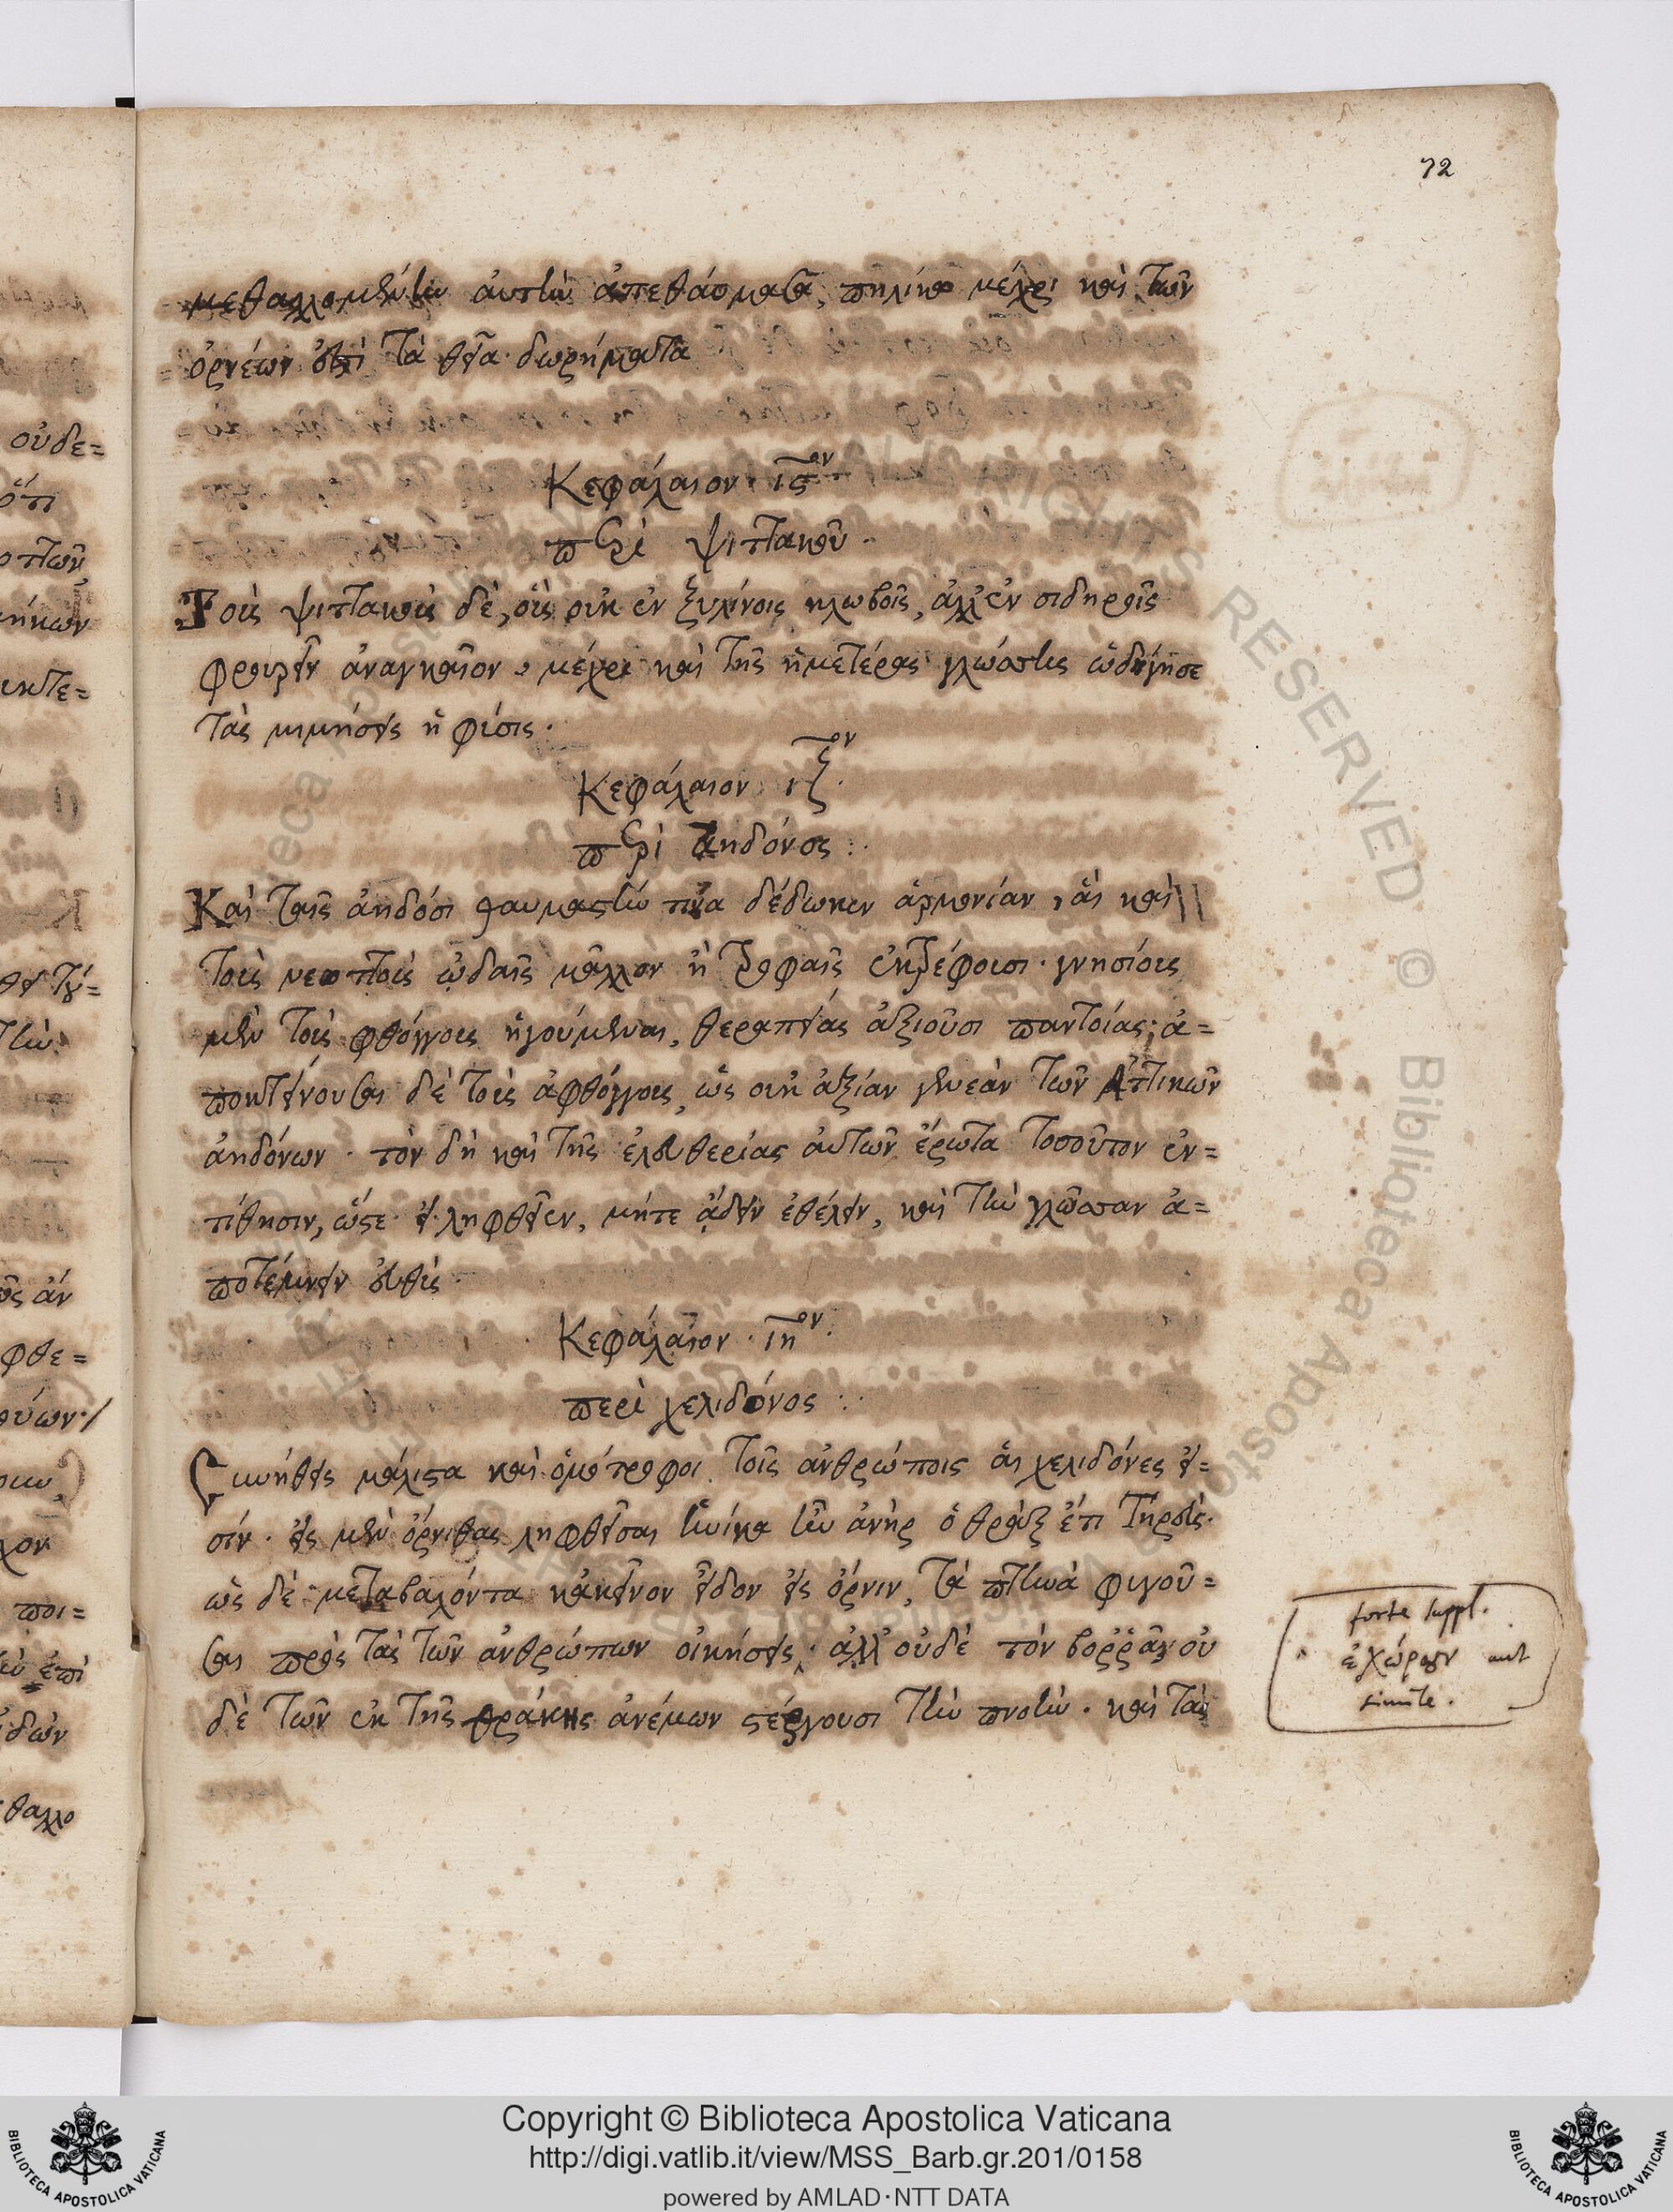 72
μεθαλλομένην αὐτὴν ἀπεθαύμασα, πηλίκα μέχρι καὶ τῶν
ὀρνέων ἐστὶ τὰ θεῖα δωρήματα
Κεφάλαιον ιςον
περὶ ψιττακοῦ.
Τοὺς ψιττακοὺς δὲ, οὓς οὐκ ἐν ξυλίνοις κλωβοῖς, ἀλλ' ἐν σιδηροῖς
φρουρεῖν ἀναγκαῖον, μέχρι καὶ τῆς ἡμετέρας γλώσσης ὡδήγησε
τὰς μιμήσεις ἡ φύσις.
Κεφάλαιον ιζον.
περὶ ἀηδόνος :.
Καὶ ταῖς ἀηδόσι θαυμαστήν τινα δέδωκεν ἁρμονίαν, αἳ καὶ
τοὺς νεοττοὺς ᾠδαῖς μᾶλλον ἢ τροφαῖς ἐκτρέφουσι. γνησίους
μὲν τοὺς φθόγγους ἡγούμεναι, θεραπείας ἀξιοῦσι παντοίας; ἀ=
ποκτείνουσαι δὲ τοὺς ἀφθόγγους, ὡς οὐκ ἀξίαν γενεὰν τῶν Ἀττικῶν
ἀηδόνων. τὸν δὴ καὶ τῆς ἐλευθερίας αὐτῶν ἔρωτα τοσοῦτον ἐν=
τίθησιν, ὥστε εἰ ληφθεῖεν, μήτε ᾄδειν ἐθέλειν, καὶ τὴν γλῶσσαν ἀ=
ποτέμνειν εὐθύς.
Κεφάλαιον ιηον.
περὶ χελιδόνος :.
Συνήθεις μάλιστα καὶ ὁμότροφοι τοῖς ἀνθρώποις αἱ χελιδόνες εἰ=
σίν. εἰς μὲν ὄρνιθας ληφθεῖσαι ἡνίκα ἦν ἀνὴρ ὁ θρᾲξ ἔτι Τηρεύς.
ὡς δὲ μεταβαλόντα κἀκεῖνον εἶδον εἰς ὄρνιν, τὰ πτηνὰ φυγοῦ=
σαι πρὸς τὰς τῶν ἀνθρώπων οἰκήσεις ‸ ἀλλ' οὐδὲ τὸν βορρᾶν οὐ
δὲ τῶν ἐκ τῆς θράκης ἀνέμων στέργουσι τὴν πνοήν. καὶ τὰς
forte suppl.
‸ ἐχώρουν aut
simile.
οὐδε=
ὅτι
Copyright © Biblioteca Apostolica Vaticana
http://digi.vatlib.it/view/MSS_Barb.gr.201/0158
powered by AMLAD·NTT DATA
BIBLIOTECA APOSTOLICA VATICANA
BIBLIOTECA APOSTOLICA VATICANA